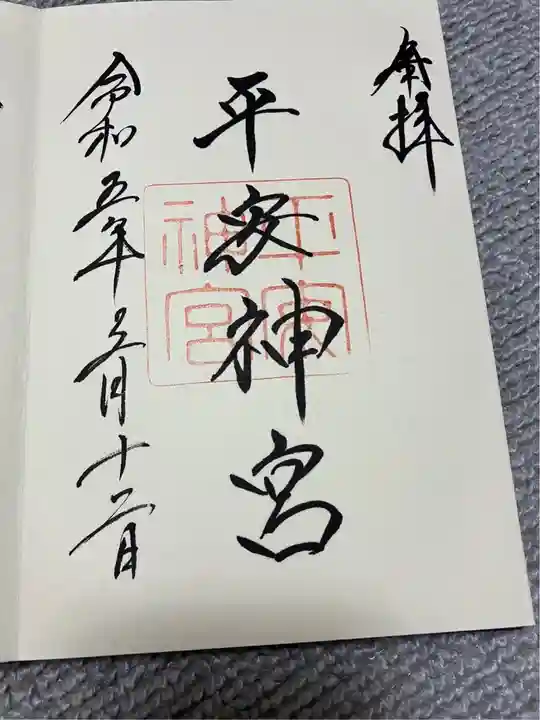 奉拝
平安神宮
平安
神宮
令和五年 月十二日